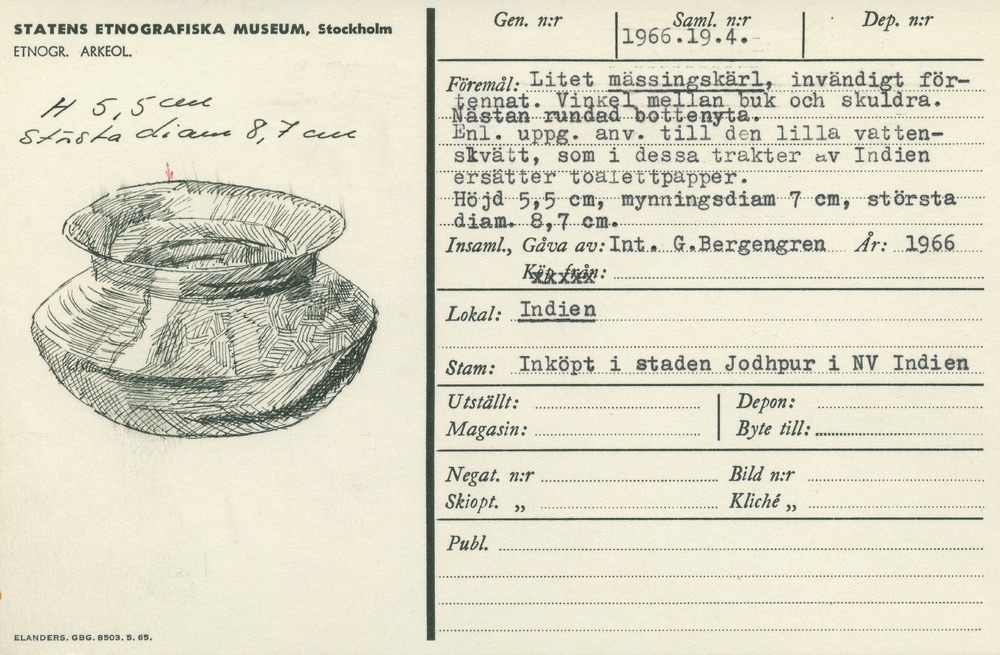 STATENS ETNOGRAFISKA MUSEUM, Stockholm
ETNOGR. ARKEOL.
H 5,5 cm
Största diam 8,7 cm
ELANDERS. GBG. 8503. 5. 65.
Gen. n:r Saml. n:r Dep. n:r
1966.19.4.
Föremål: Litet mässingskärl, invändigt för-
tennat. Vinkel mellan buk och skuldra.
Nästan rundad bottenyta.
Enl. uppg. anv. till den lilla vatten-
skvätt, som i dessa trakter av Indien
ersätter toalettpapper.
Höjd 5,5 cm, mynningsdiam 7 cm, största
diam. 8,7 cm.
Insaml., Gåva av: Int. G.Bergengren År: 1966
Köp från:
Lokal: Indien
Stam: Inköpt i staden Jodhpur i NV Indien
Utställt: Depon:
Magasin: Byte till:
Negat. n:r Bild n:r
Skiopt. „ Kliché „
Publ.